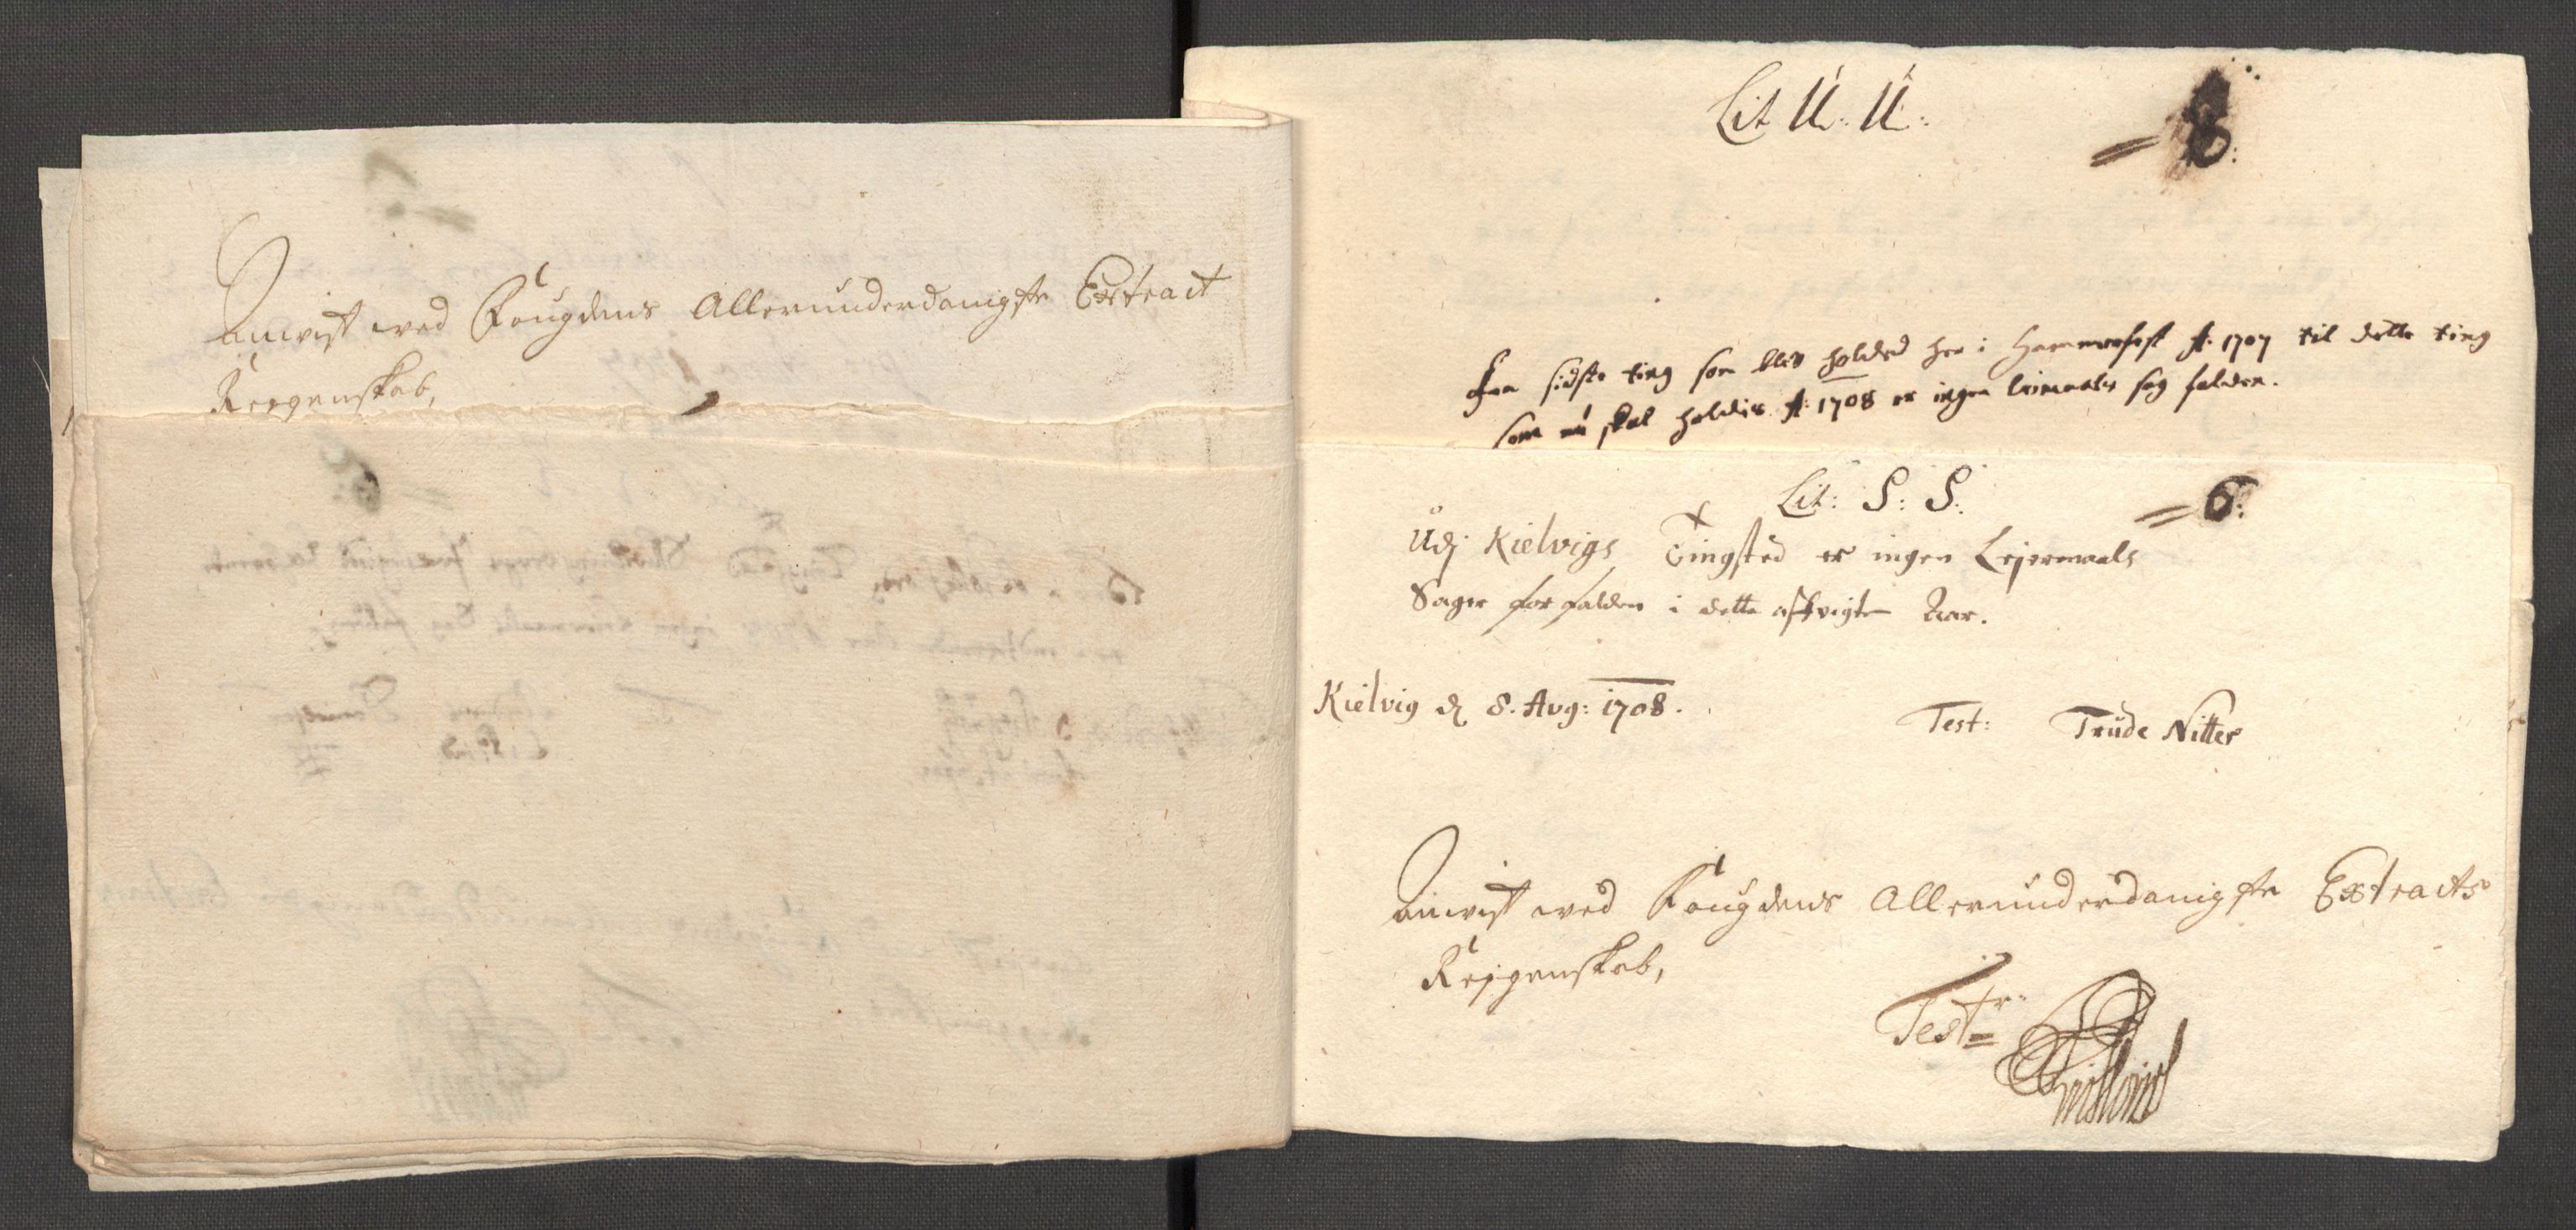 Anvist ved Fougdens Allerunderdanigste Extract
Regenskab,
Lit U: U:
= 8:
Fra sidste ting som blev holded her i Hammerfest A: 1707 til dette ting
som nu skal holdis A: 1708 er ingen leiermaals sag falden.
Lit: S: S:
= 6:
Udj Kielvigs Tingsted er ingen Lejermaals
Sager forfalden i dette afvigte Aar.
Kielvig d 8. Aug: 1708.
Test: Trude Nitter
Anvist ved Fougdens Allerunderdanigste Extracts
Regenskab,
Test